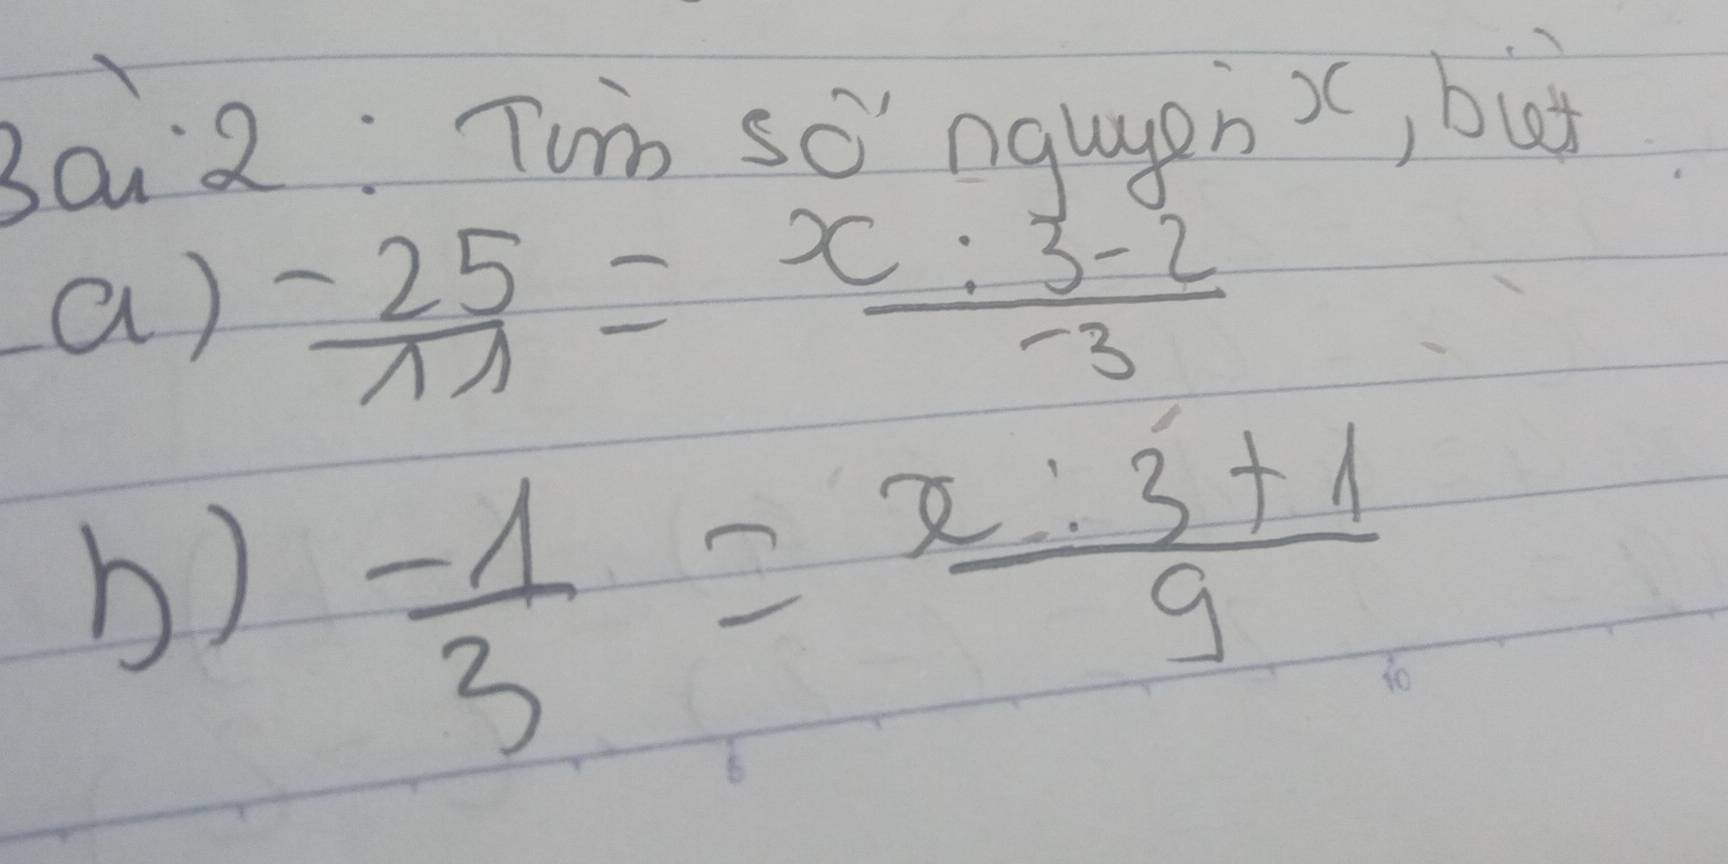 Bài 2 : Tìm số nguyên x, biết
a) -25/11 = x : 3 - 2/-3
b) -1/3 = x : 3 + 1/9
5 10